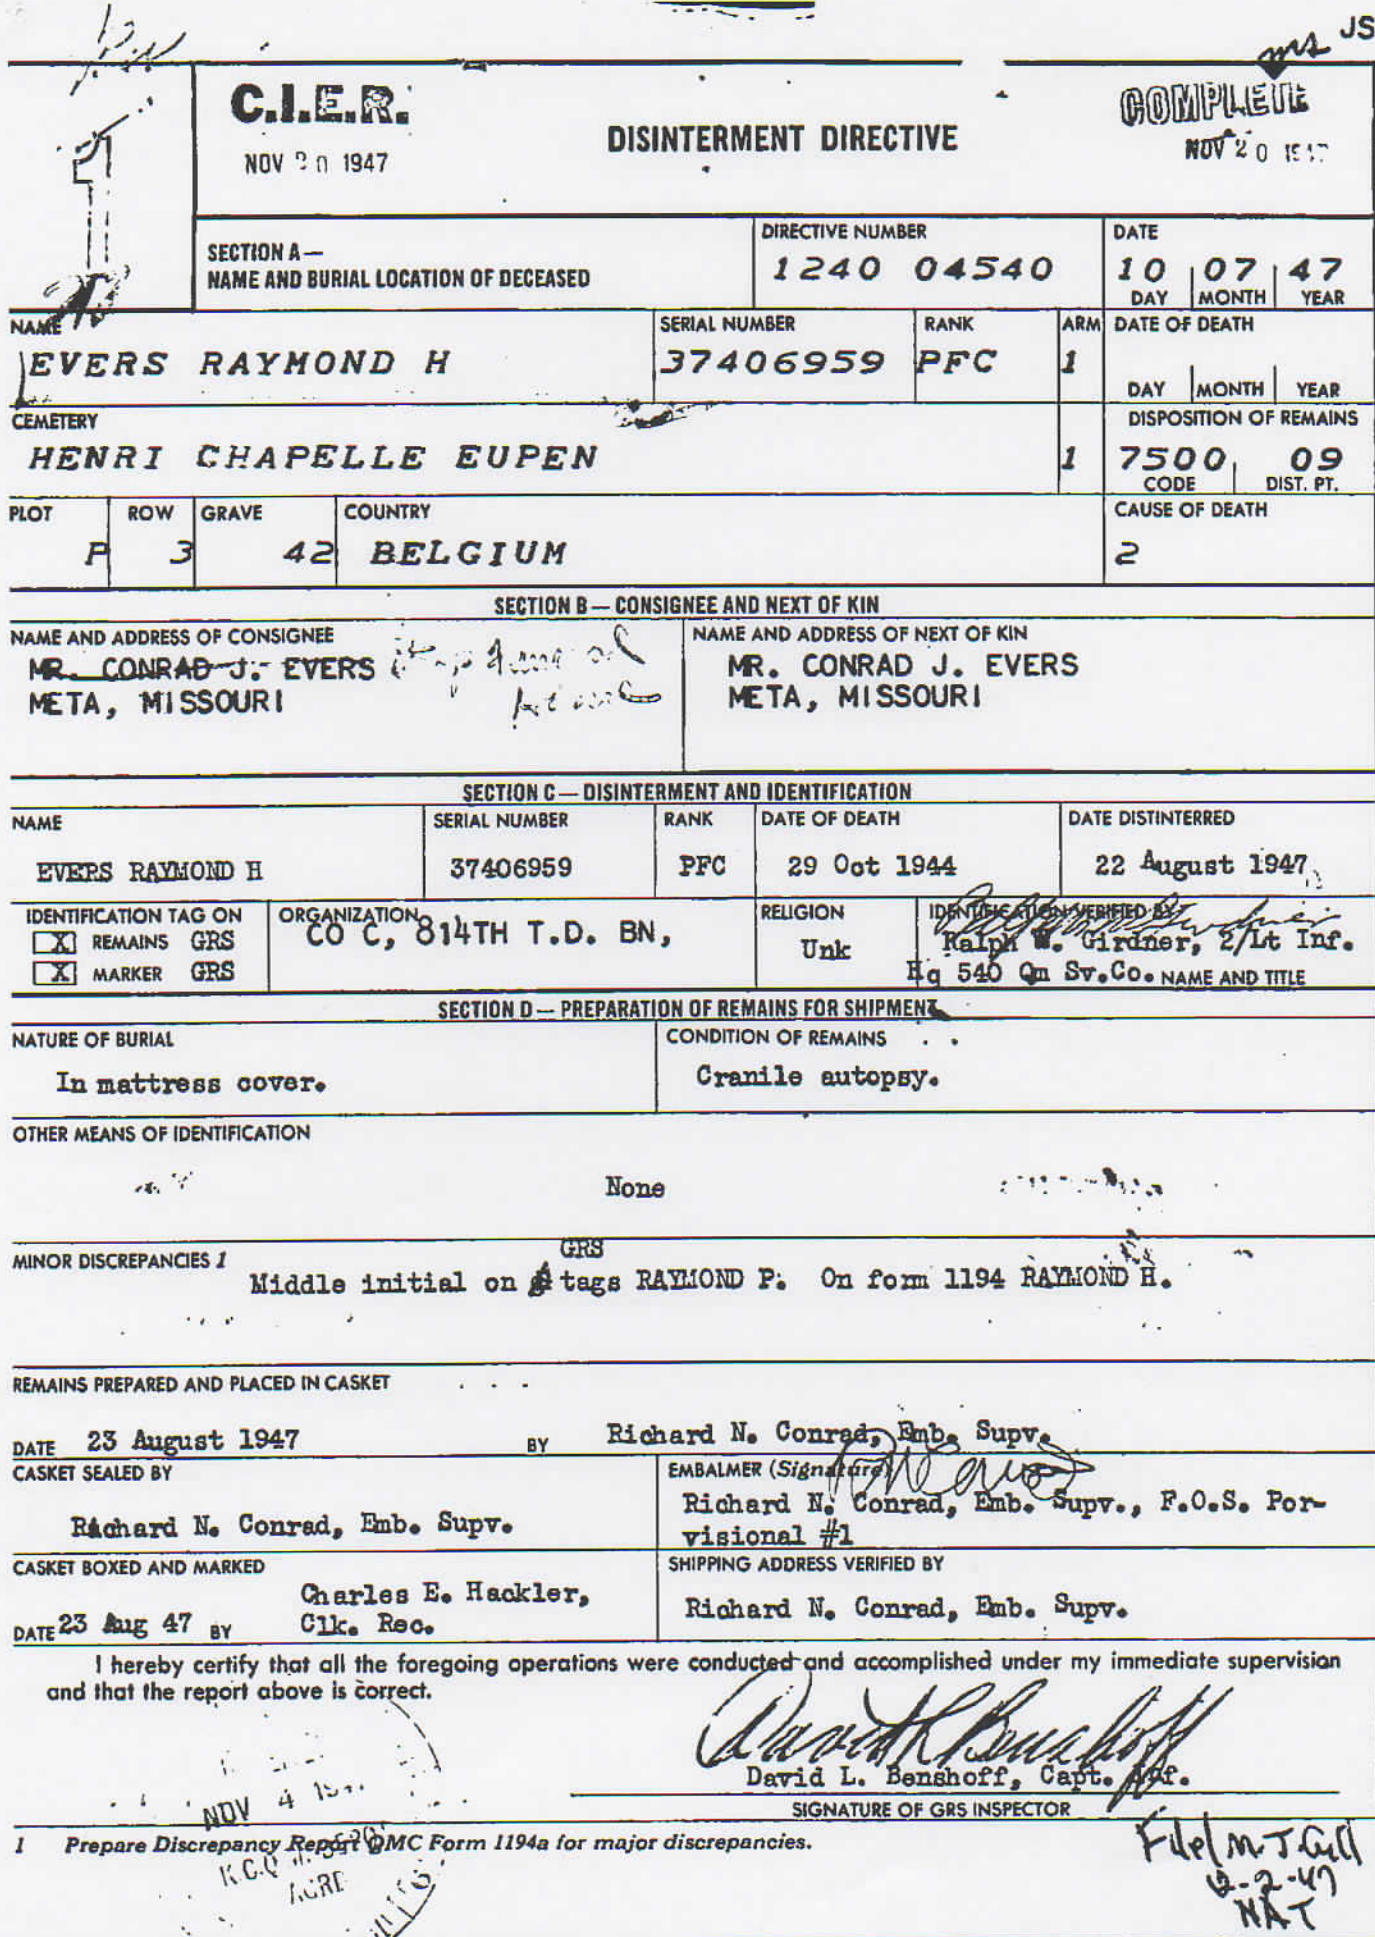 JS
C.I.E.R.
NOV 20 1947
DISINTERMENT DIRECTIVE
COMPLETE
NOV 20 1947
SECTION A—
NAME AND BURIAL LOCATION OF DECEASED
DIRECTIVE NUMBER
1240 04540
DATE
10 07 47
DAY MONTH YEAR
NAME
EVERS RAYMOND H
SERIAL NUMBER
37406959
RANK
PFC
ARM
1
DATE OF DEATH
DAY MONTH YEAR
CEMETERY
HENRI CHAPELLE EUPEN
1
DISPOSITION OF REMAINS
7500 09
CODE DIST. PT.
PLOT
P
ROW
3
GRAVE
42
COUNTRY
BELGIUM
CAUSE OF DEATH
2
SECTION B — CONSIGNEE AND NEXT OF KIN
NAME AND ADDRESS OF CONSIGNEE
MR. CONRAD J. EVERS
META, MISSOURI
NAME AND ADDRESS OF NEXT OF KIN
MR. CONRAD J. EVERS
META, MISSOURI
SECTION C — DISINTERMENT AND IDENTIFICATION
NAME
EVERS RAYMOND H
SERIAL NUMBER
37406959
RANK
PFC
DATE OF DEATH
29 Oct 1944
DATE DISTINTERRED
22 August 1947
IDENTIFICATION TAG ON
X REMAINS GRS
X MARKER GRS
ORGANIZATION
CO C, 814TH T.D. BN,
RELIGION
Unk
IDENTIFICATION VERIFIED BY
Ralph W. Girdner, 2/Lt Inf.
Hq 540 Qm Sv.Co. NAME AND TITLE
SECTION D — PREPARATION OF REMAINS FOR SHIPMENT
NATURE OF BURIAL
In mattress cover.
CONDITION OF REMAINS
Cranile autopsy.
OTHER MEANS OF IDENTIFICATION
None
MINOR DISCREPANCIES 1
GRS
Middle initial on tags RAYMOND P. On form 1194 RAYMOND H.
REMAINS PREPARED AND PLACED IN CASKET
DATE 23 August 1947 BY Richard N. Conrad, Emb. Supv.
CASKET SEALED BY
Richard N. Conrad, Emb. Supv.
EMBALMER (Signature)
Richard N. Conrad, Emb. Supv., F.O.S. Por-
visional #1
CASKET BOXED AND MARKED
Charles E. Hackler,
DATE 23 Aug 47 BY Clk. Rec.
SHIPPING ADDRESS VERIFIED BY
Richard N. Conrad, Emb. Supv.
I hereby certify that all the foregoing operations were conducted and accomplished under my immediate supervision
and that the report above is correct.
David L Benshoff
David L. Benshoff, Capt. Inf.
SIGNATURE OF GRS INSPECTOR
NOV 4
1 Prepare Discrepancy Report QMC Form 1194a for major discrepancies.
File
12-2-47
NAT